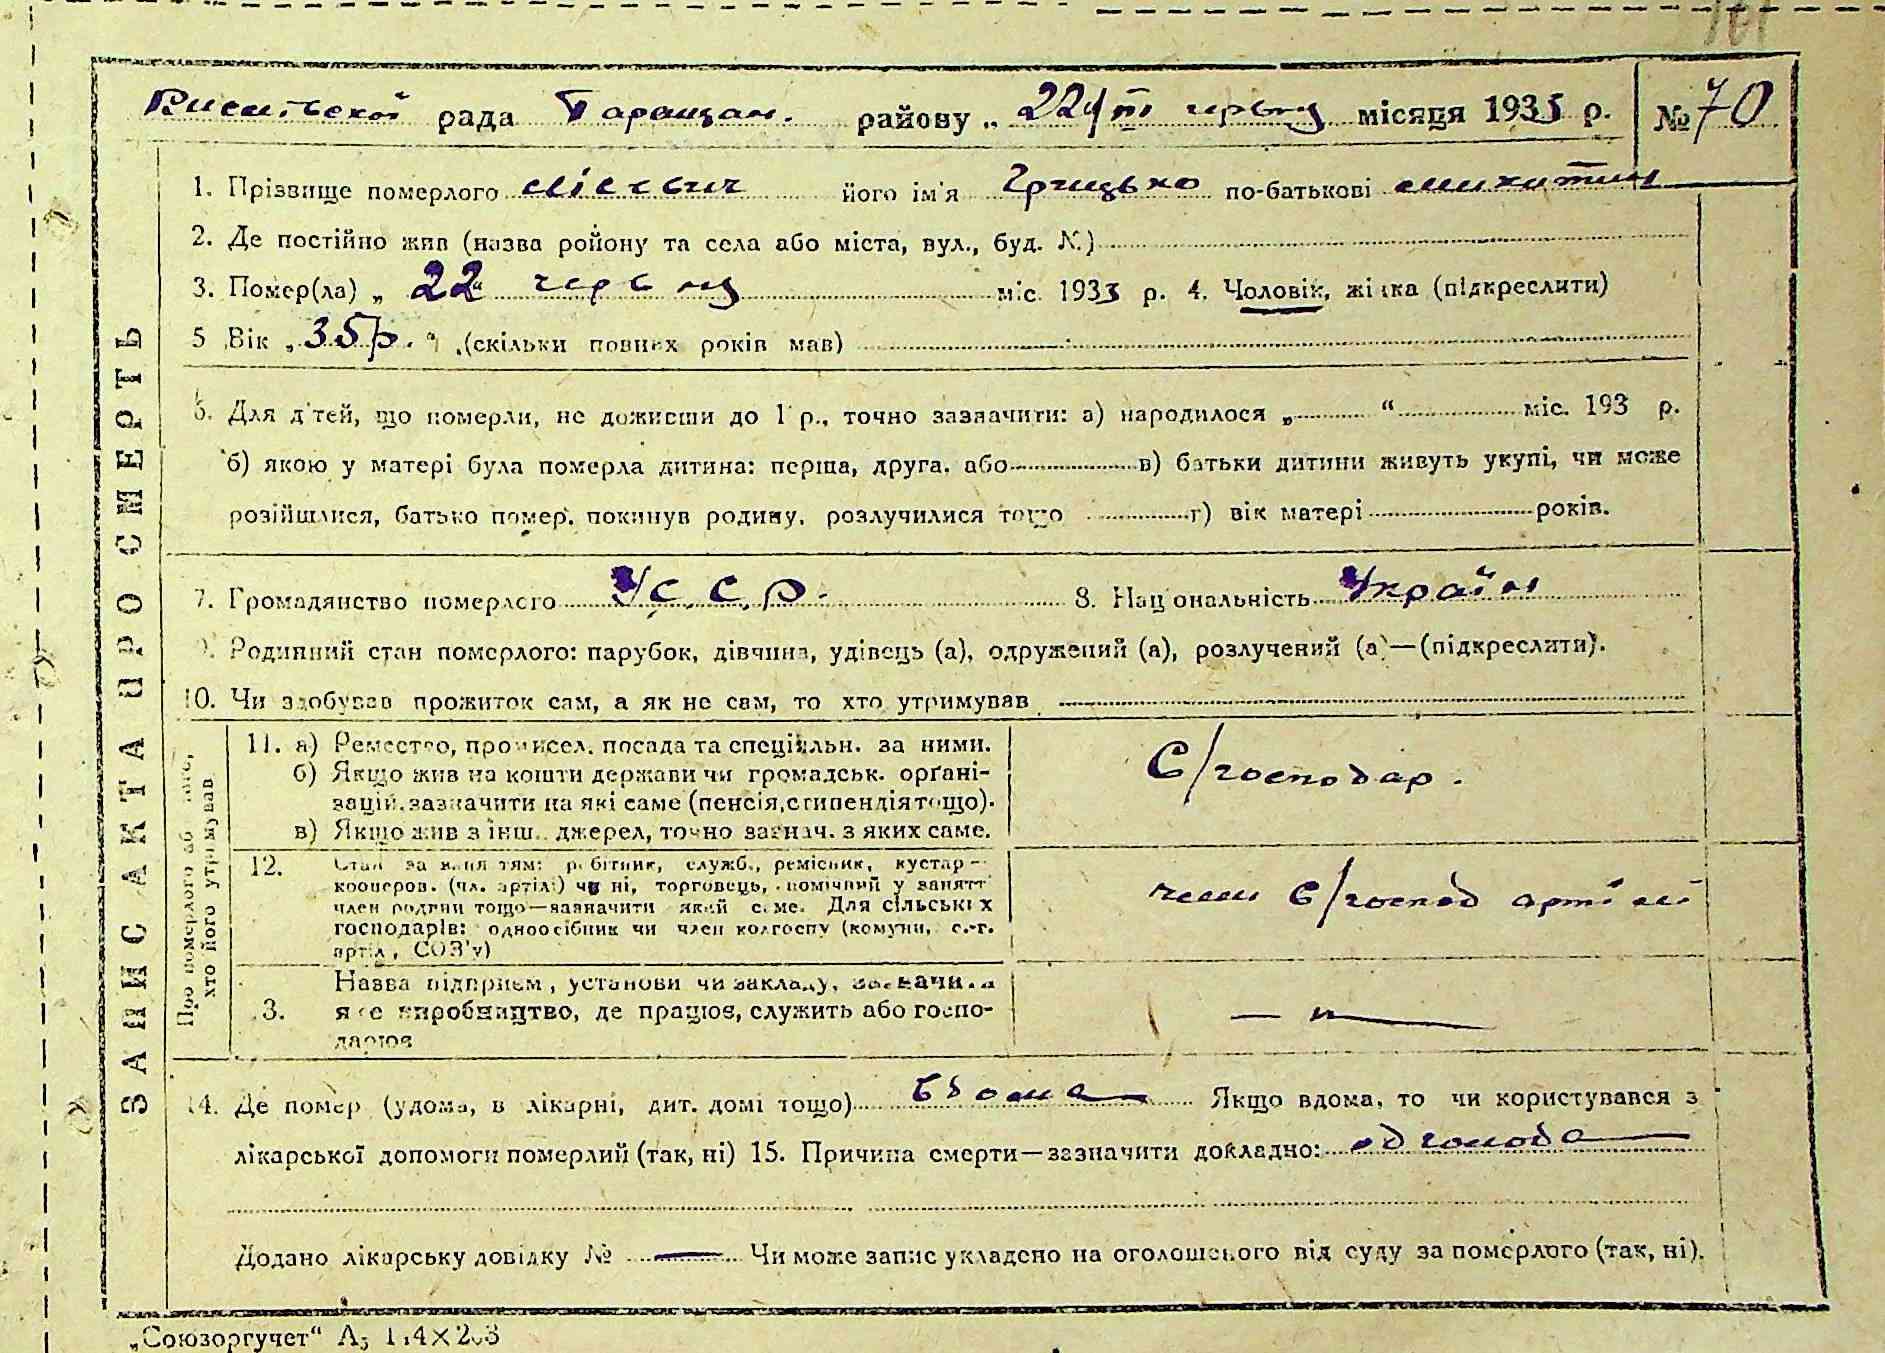 рада Таращан. району „ 22/VI червня місяця 1933 р. № 70
1. Прізвище померлого його ім'я Грицько по-батькові Микитин
2. Де постійно жив (назваройону та села або міста, вул., буд. №)
3. Помер(ла) „ 22 " червня міс. 1933 р. 4. Чоловік, жінка (підкреслити)
5 Вік „ 35 р. " (скільки повних років мав)
6. Для дітей, що померли, не доживши до 1 р., точно зазначити: а) народилося „ " міс. 193 р.
б) якою у матері була померла дитина: перша, друга, або в) батьки дитини живуть укупі, чи може
розійшлися, батько помер, покинув родину, розлучилися тощо г) вік матері років.
7. Громадянство померлого У.С.С.Р. 8. Національність Україн
9. Родинний стан померлого: парубок, дівчина, удівець (а), одружений (а), розлучений (а)—(підкреслити).
10. Чи здобував прожиток сам, а як не сам, то хто утримував
ЗАПИС АКТА ПРО СМЕРТЬ
Про померлого або того, хто його утримував
11. а) Ремество, промисел, посада та спеціяльн. за ними.
С/господар.
б) Якщо жив на кошти держави чи громадськ. орґані-
зацій, зазначити на які саме (пенсія, стипендія тощо).
в) Якщо жив з інш. джерел, точно зазнач. з яких саме.
12. Стан за заняттям: робітник, служб., ремісник, кустар —
кооперов. (чл. артілі) чи ні, торговець, помічний у занятті
член родини тощо—зазначити який саме. Для сільських
господарів: одноосібник чи член колгоспу (комуни, с.-г.
артіл, СОЗ'у)
член С/господ артілі
13. Назва підприєм, установи чи закладу, зазначила
яке виробництво, де працює, служить або госпо-
дарює
— " —
14. Де помер (удома, в лікарні, дит. домі тощо) вдома Якщо вдома, то чи користувався з
лікарської допомоги померлий (так, ні) 15. Причина смерти—зазначити докладно: од голода
Додано лікарську довідку № — Чи може запис укладено на оголошеного від суду за померлого (так, ні).
„Союзоргучет"